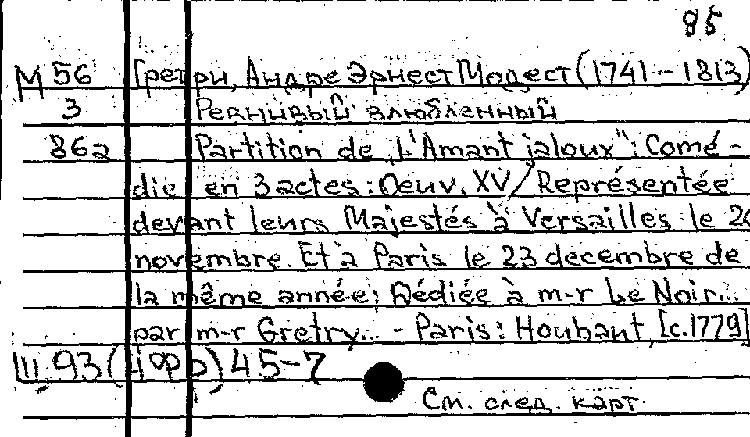 95
М 56 Гретри, Андре Эрнест Модест (1741-1813)
3 Ревнивый влюбленный
862 Partition de „L'Amant jaloux": Comé-
die en 3 actes: Oeuv. XV/Représentée
devant leurs Majestés à Versailles le 20
novembre. Et à Paris le 23 decembre de
la même année; Dédiée à m-r Le Noir...
par m-r Gretry... - Paris: Houbant, [c.1779]
93( ) 45-7
См. след. карт.